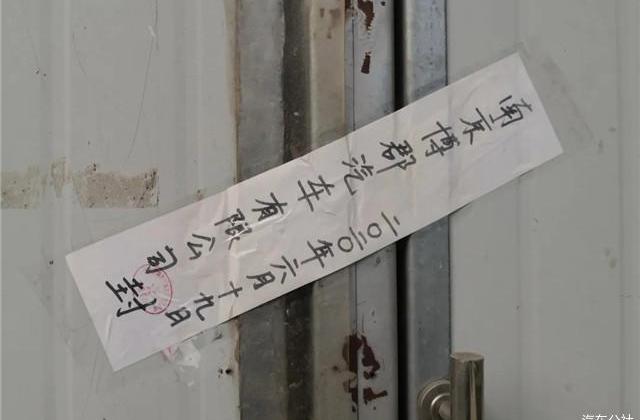 南京博郡汽车有限公司
二〇二〇年六月十九日
封
汽车公社